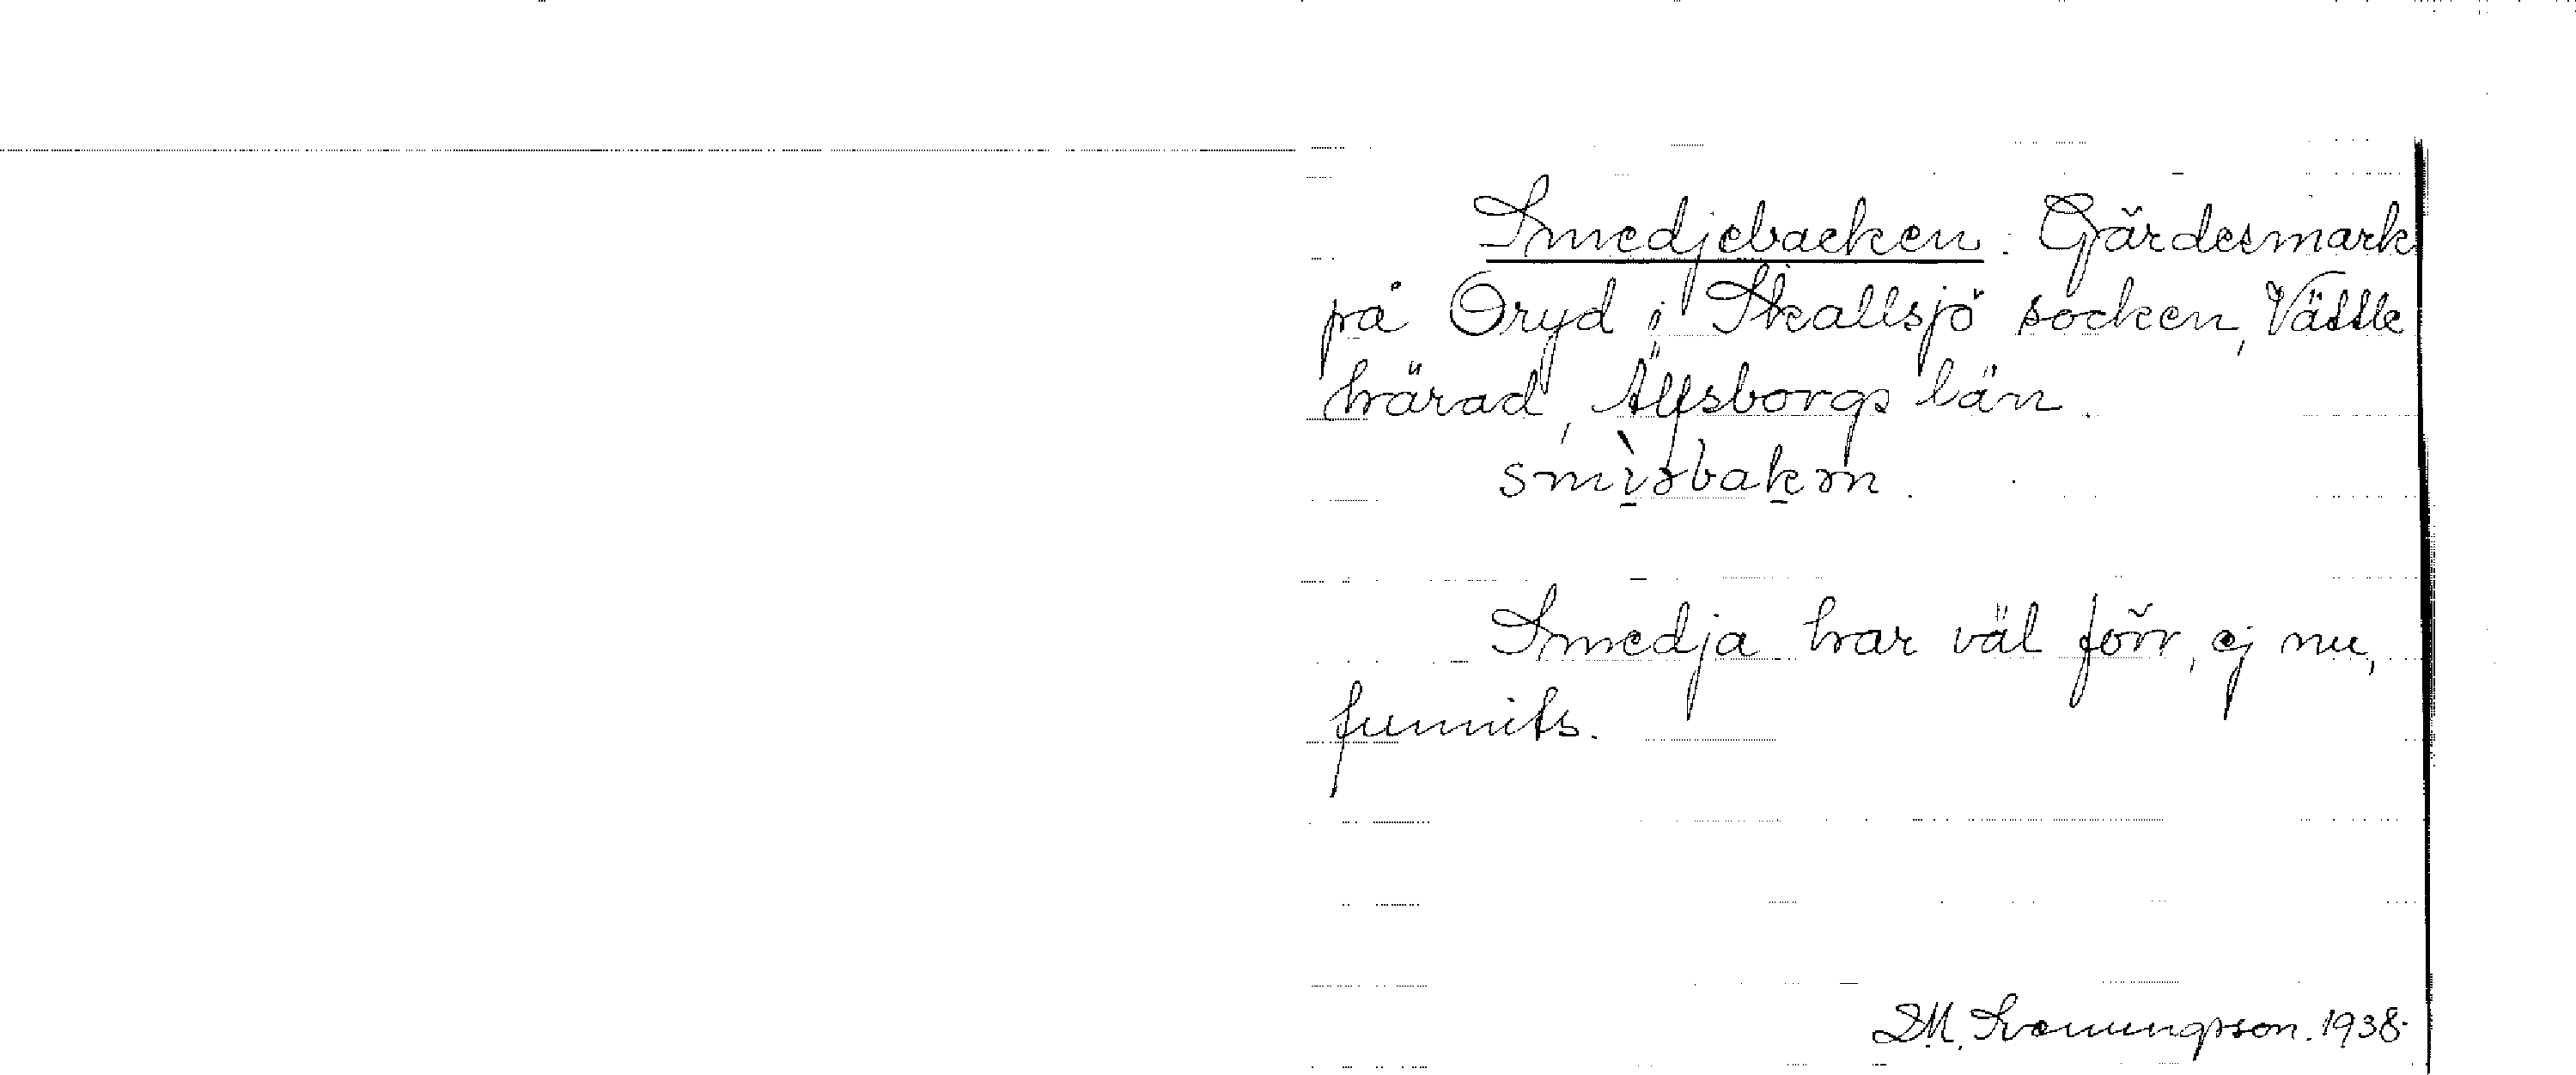 Smedjebacken. Gärdesmark
på Oryd i Skallsjö socken, Vättle
härad, Älfsborgs län.
smìəbakən.
Smedja har väl förr, ej nu,
funnits.
D.M. Svenungsson. 1938.